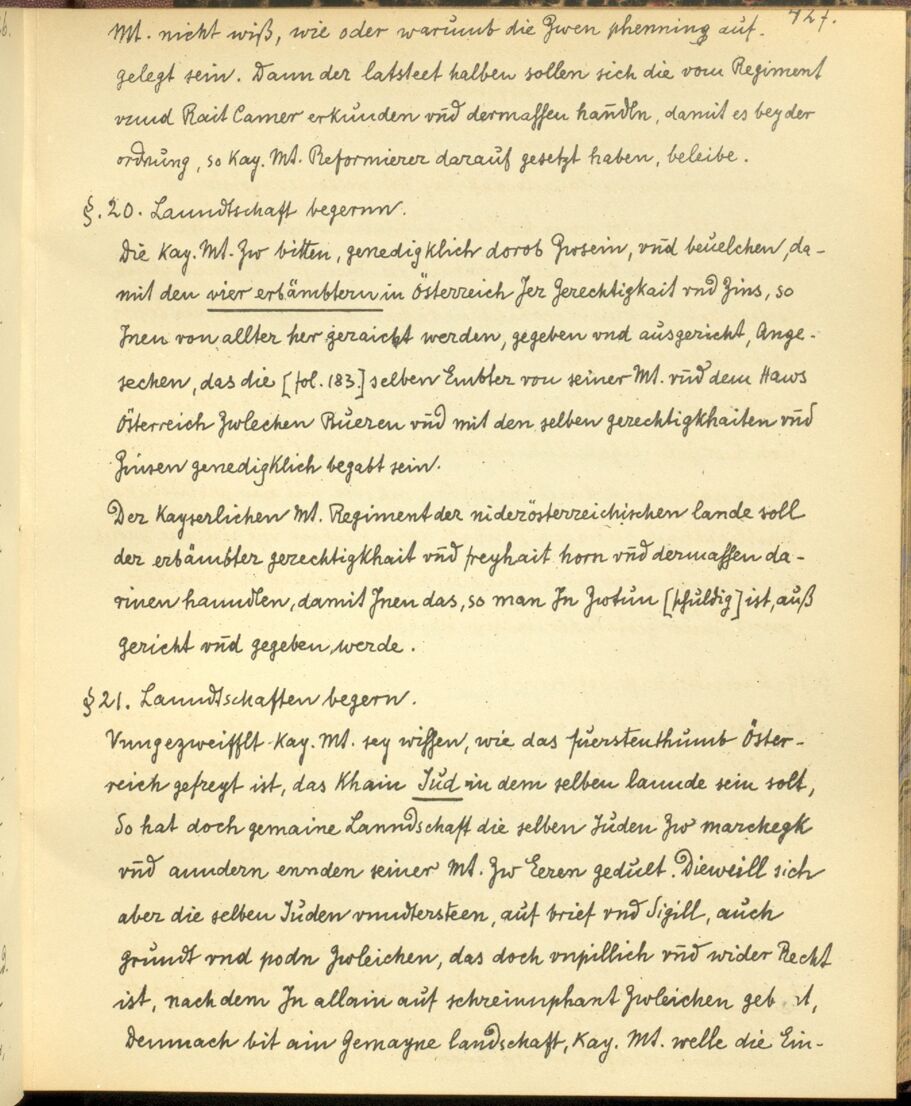 727.
Mt. nicht wiß, wie oder warumb die Zwen phenning auf-
gelegt sein. Dann der latsteet halben sollen sich die vom Regiment
vnnd Rait Camer erkunden vnd dermassen handln, damit es bey der
ordnung, so Kay. Mt. Reformierer darauf gesetzt haben, beleibe.
§. 20. Lanndtschaft begernn.
Die Kay. Mt. Zw bitten, genedigklich dorob Zwsein, vnd beuelchen, da-
mit den vier erbämbtern in Österreich Jer Gerechtigkait vnd Zins, so
Jnen von allter her geraicht werden, gegeben vnd ausgericht, Ange-
sechen, das die [fol. 183.] selben Embter von seiner Mt. vnd dem Haws
Österreich Zwlechen Rueren vnd mit den selben gerechtigkhaiten vnd
Zinsen genedigklich begabt sein.
Der Kayserlichen Mt. Regiment der niderösterreichischen lande soll
der erbämbter gerechtigkhait vnd freyhait horn vnd dermassen da-
rinen hanndlen, damit Jnen das, so man Jn Zwtun [schuldig] ist, auß
gericht vnd gegeben werde.
§ 21. Lanndtschaften begern.
Vnngezweifflt Kay. Mt. sey wissen, wie das fuerstenthumb Öster-
reich gefreyt ist, das Khain Jud in dem selben lannde sein solt,
So hat doch gemaine Lanndschaft die selben Juden Zw marchegk
vnd anndern ennden seiner Mt. Zw Eeren gedult. Dieweill sich
aber die selben Juden vnndtersteen, auf brief vnd Sigill, auch
grundt vnd podn Zwleichen, das doch vnpillich vnd wider Recht
ist, nachdem Jn allain auf schreinnphant Zwleichen
Demnach bit ain Gemayne landschaft, Kay. Mt. welle die Ein-